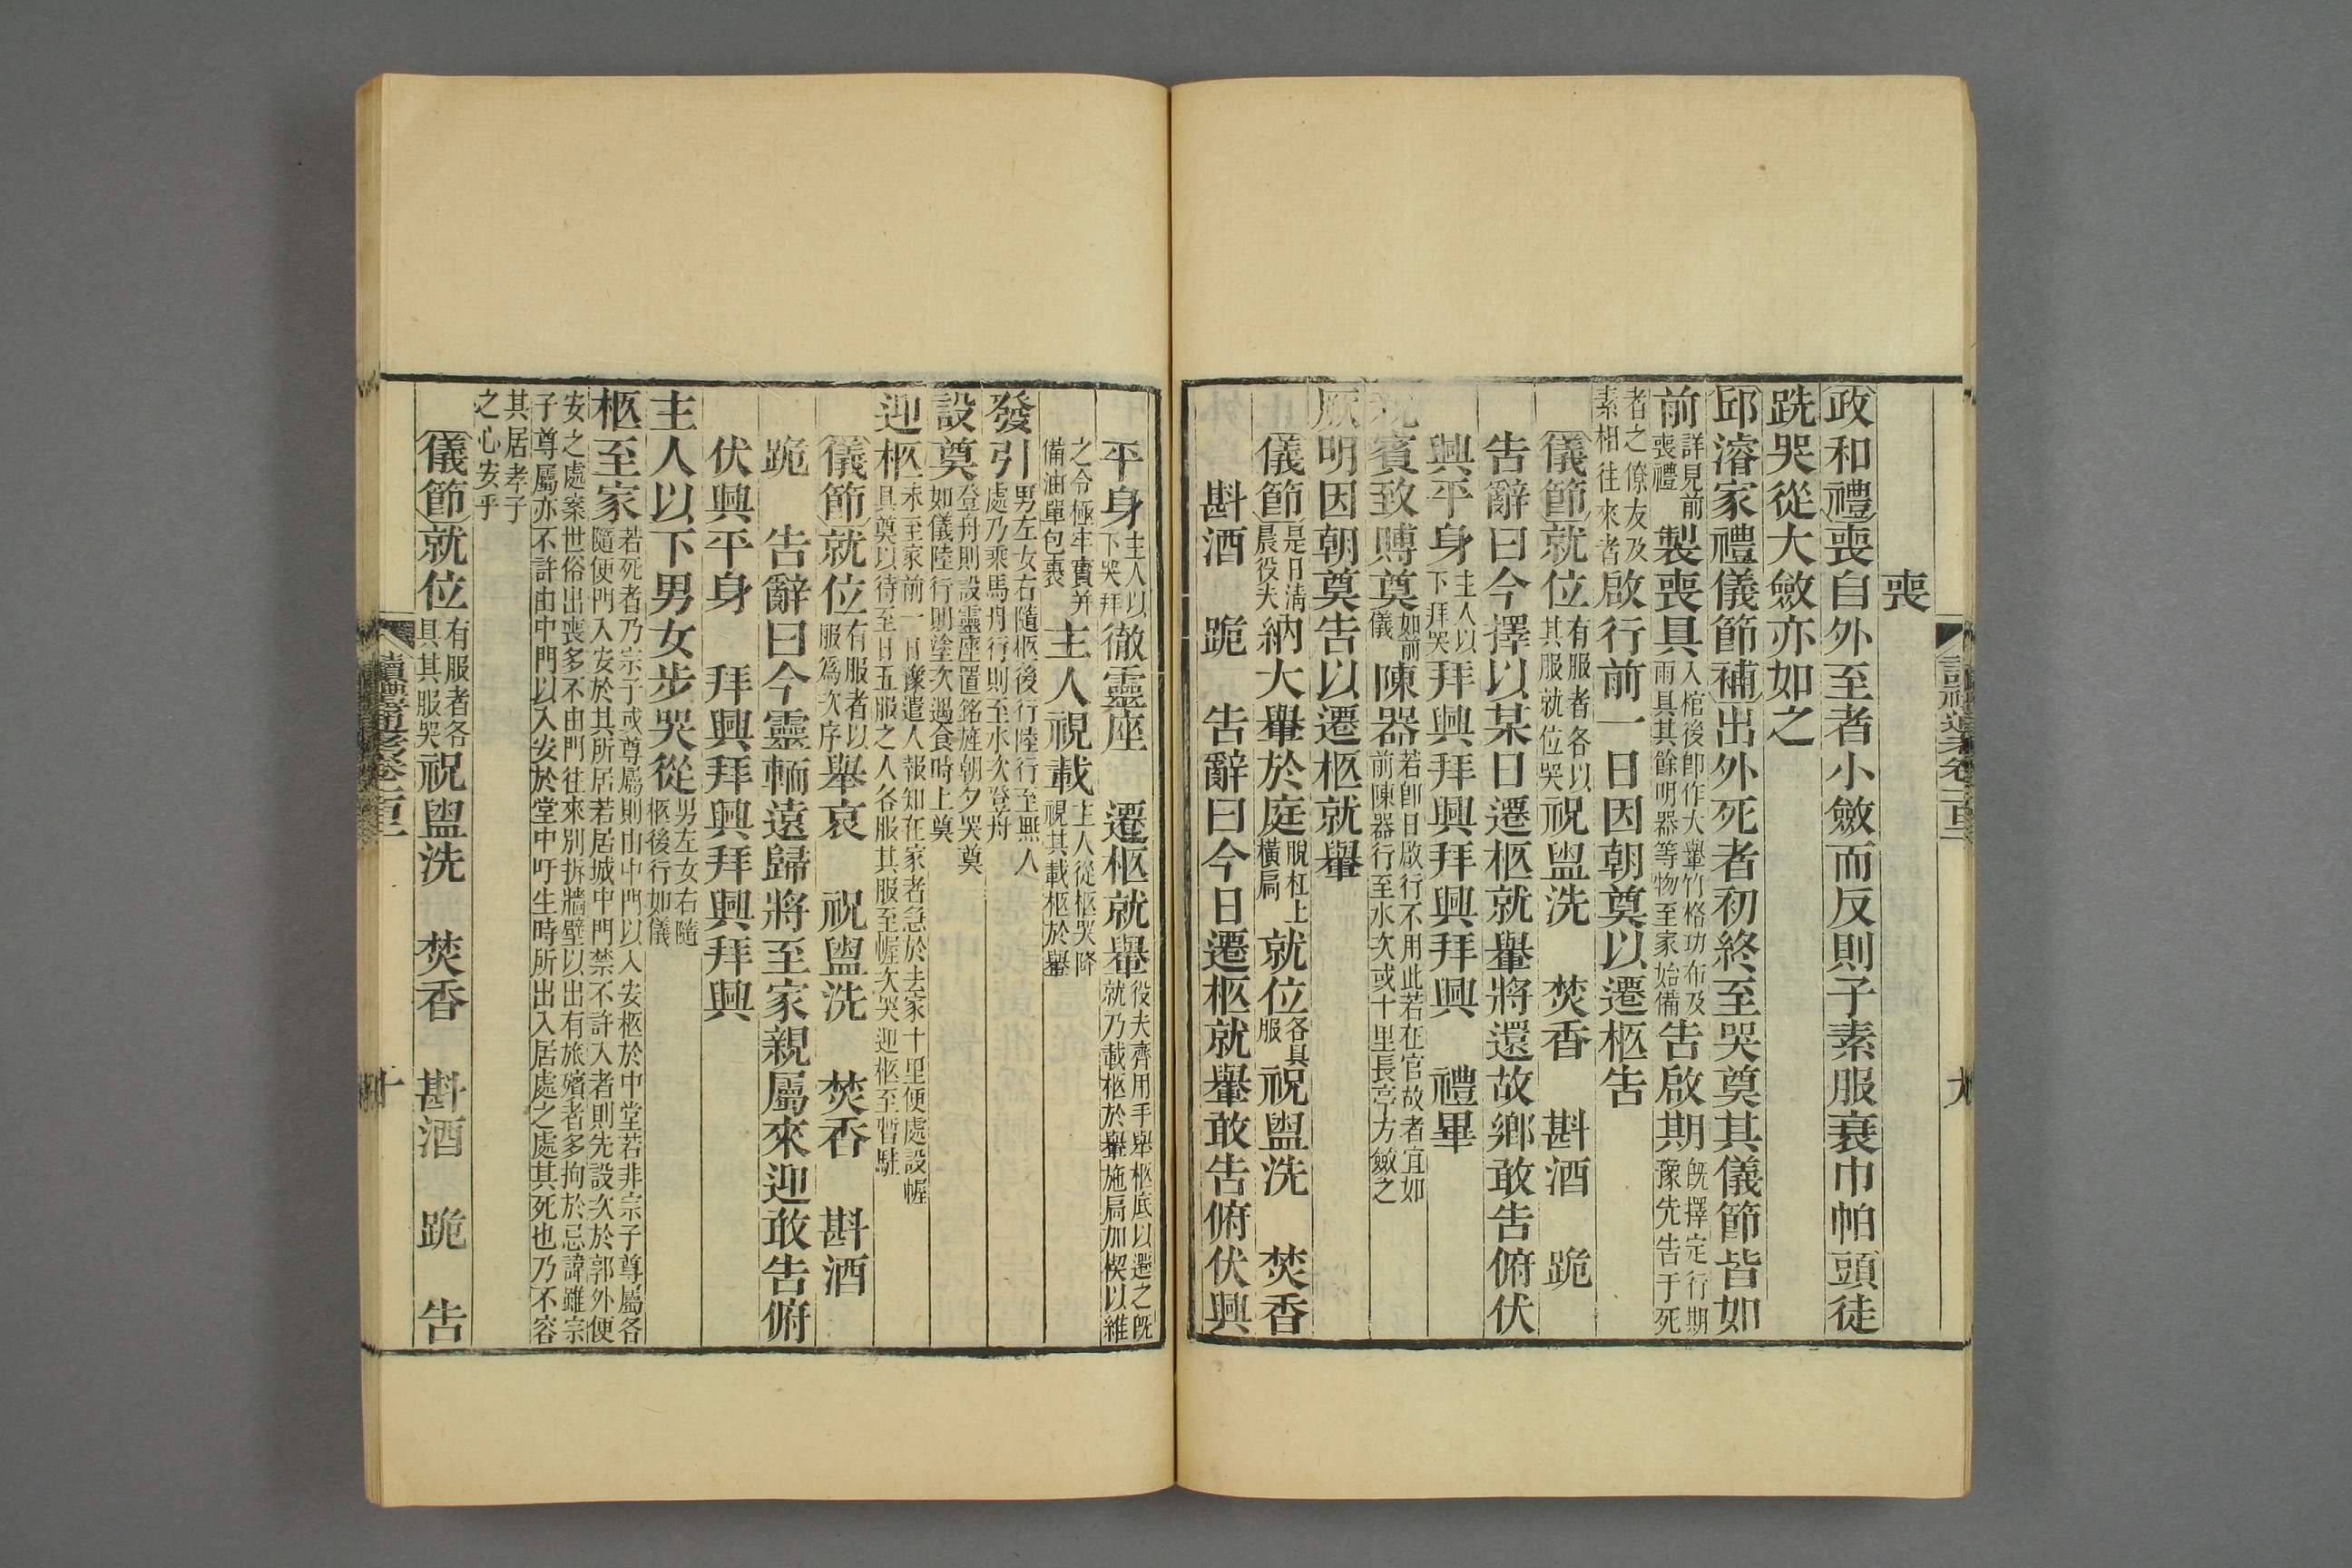 喪
政和禮喪自外至者小斂而反則子素服衰巾帕頭徒
跣哭從大斂亦如之
邱濬家禮儀節補出外死者初終至哭奠其儀節皆如
前詳見前喪禮製喪具入棺後卽作大轝竹格功布及雨具其餘明器等物至家始備告啟期旣擇定行期豫先告于死
者之僚友及素相往來者啟行前一日因朝奠以遷柩告
儀節就位有服者各以其服就位哭祝盥洗 焚香 斟酒 跪
告辭曰今擇以某日遷柩就轝將還故鄉敢告俯伏
興平身主人以下拜哭拜興拜興拜興拜興 禮畢
親賓致賻奠如前儀陳器若卽日啟行不用此若在官故者宜如前陳器行至水次或十里長亭方斂之
厥明因朝奠告以遷柩就轝
儀節是日淸晨役夫納大轝於庭脫杠上橫扃就位各具服祝盥洗 焚香
斟酒 跪 告辭曰今日遷柩就轝敢告俯伏興
平身主人以下哭拜徹靈座 遷柩就轝役夫齊用手舉柩底以遷之旣就乃載柩於轝施扃加楔以維
之令極牢實幷備油單包裹主人視載主人從柩哭降視其載柩於轝
發引男左女右隨柩後行陸行至無人處乃乘馬舟行則至水次登舟
設奠登舟則設靈座置銘旌朝夕哭奠如儀陸行則塗次遇食時上奠
迎柩未至家前一日豫遣人報知在家者急於去家十里便處設幄具奠以待至日五服之人各服其服至幄次哭迎柩至暫駐
儀節就位有服者以服爲次序舉哀 祝盥洗 焚香 斟酒
跪 告辭曰今靈輀遠歸將至家親屬來迎敢告俯
伏興平身 拜興拜興拜興拜興
主人以下男女步哭從男左女右隨柩後行如儀
柩至家若死者乃宗子或尊屬則由中門以入安柩於中堂若非宗子尊屬各隨便門入安於其所居若居城中門禁不許入者則先設次於郭外便
安之處案世俗出喪多不由門往來別拆牆壁以出有旅殯者多拘於忌諱雖宗子尊屬亦不許由中門以入安於堂中吁生時所出入居處之處其死也乃不容
其居孝子之心安乎
儀節就位有服者各具其服哭祝盥洗 焚香 斟酒 跪 告
讀禮通考卷一百二
十